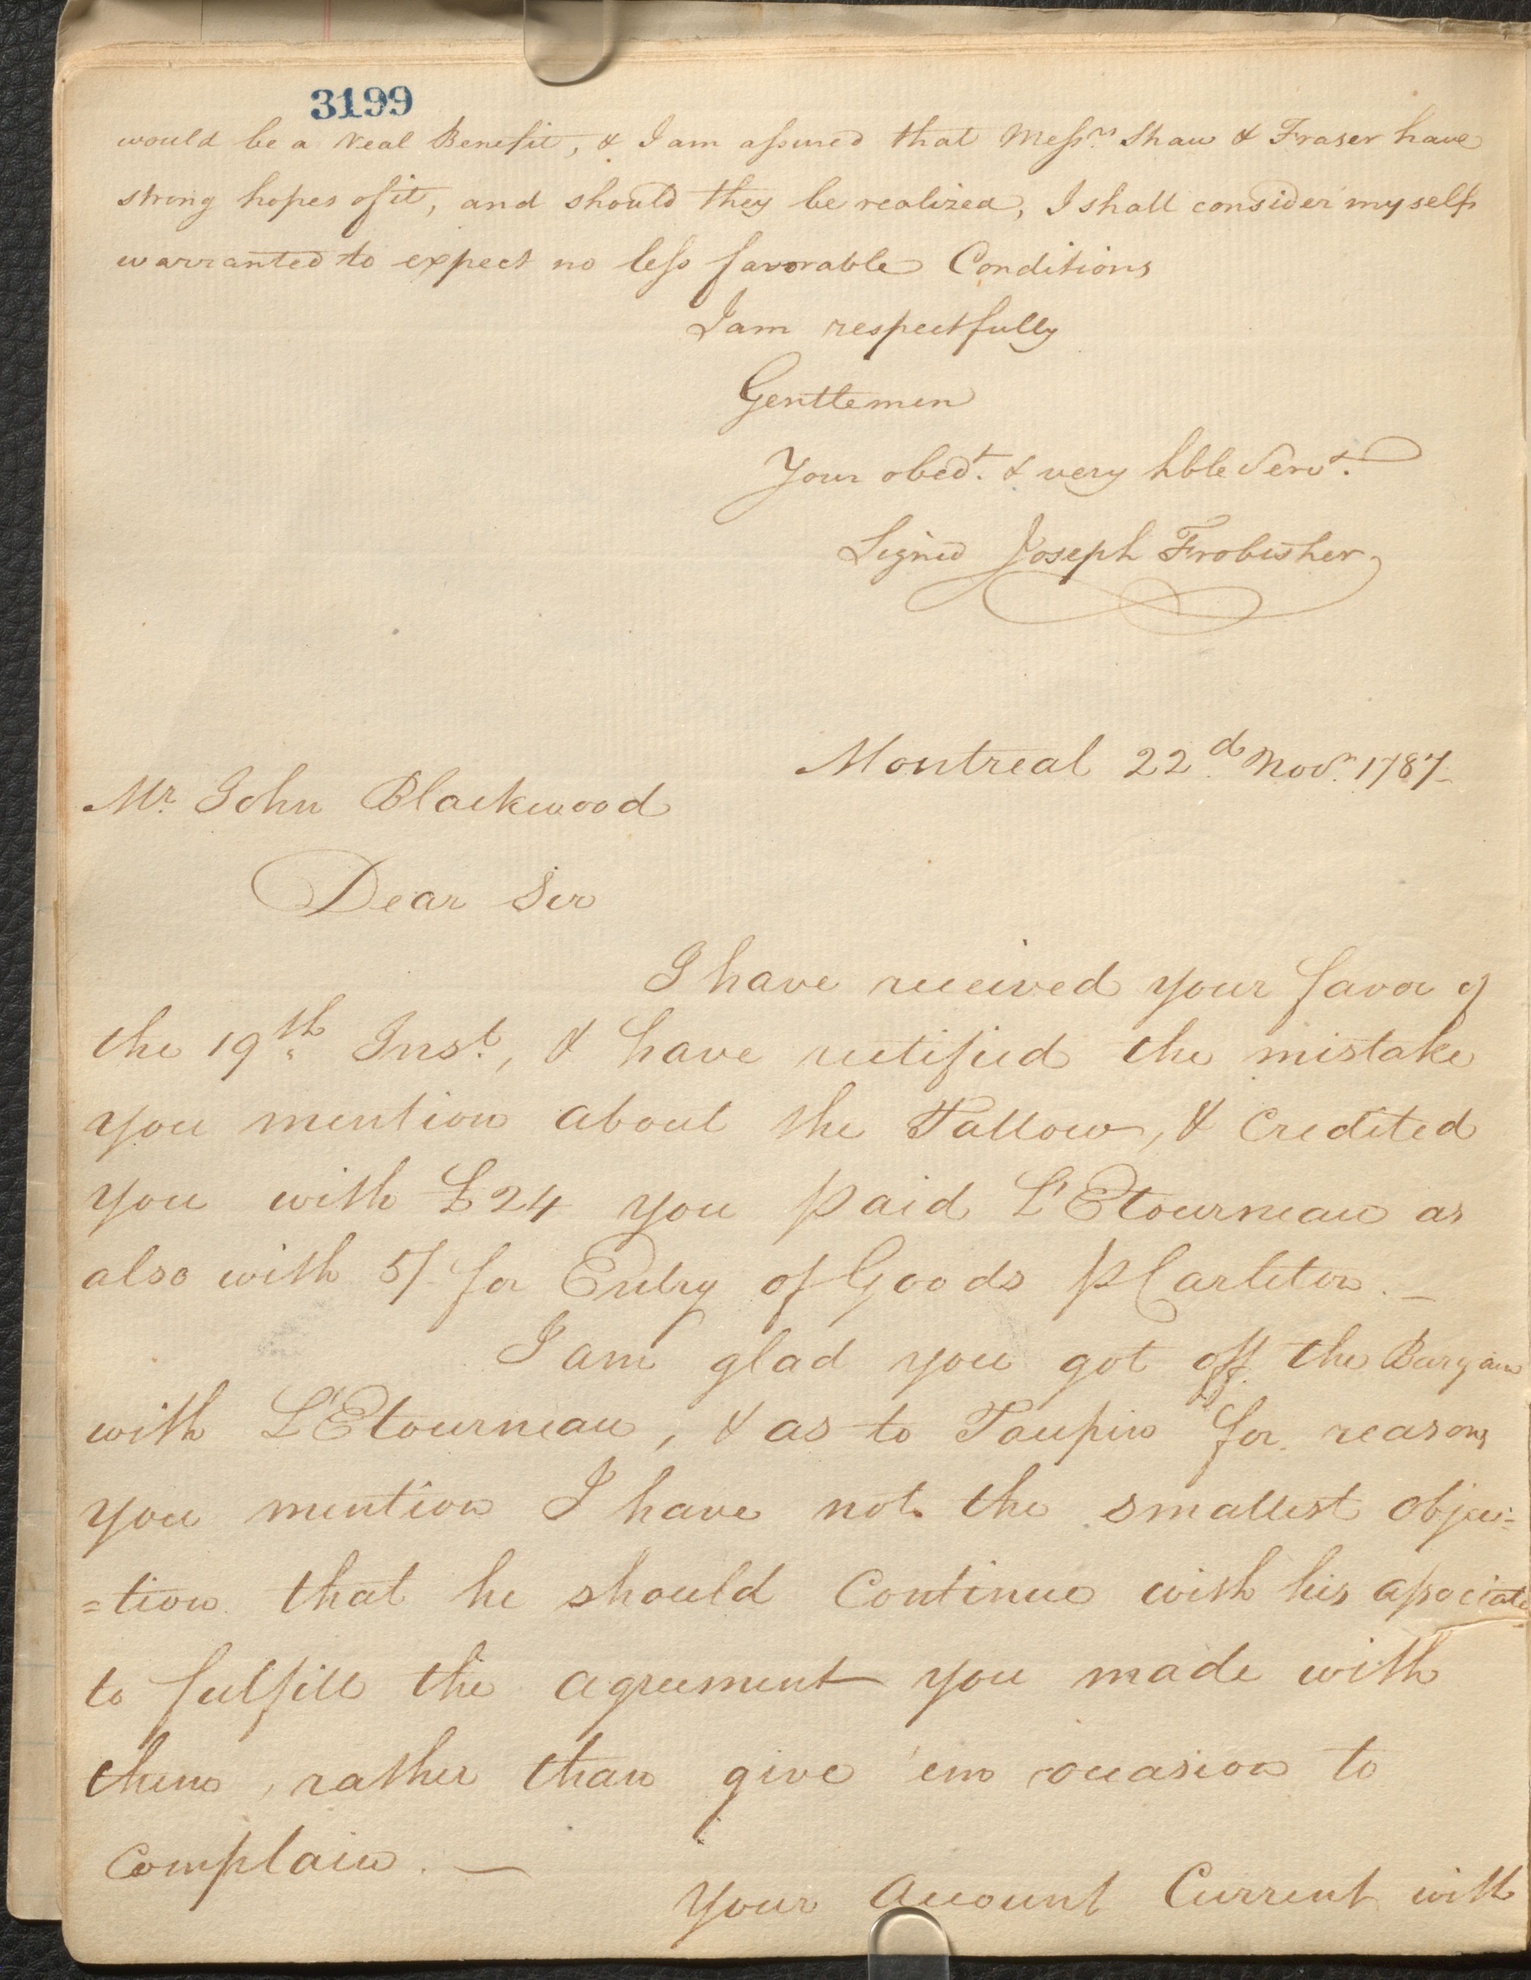 3199
would be a real Benefit, & I am assured that Messrs. Shaw & Fraser have
strong hopes of it, and should they be realized, I shall consider myself
warranted to expect no less favorable Conditions
I am respectfully
Gentlemen
Your obedt. & very hble Servt.
Signed Joseph Frobisher
Montreal 22d. Novr. 1787
Mr. John Blackwood
Dear Sir
I have received your favor of
the 19th. Inst., & have rectified the mistake
you mention about the Tallow, & Credited
you with £24 you paid L'Etourneau as
also with 5/ for Entry of Goods p Carleton. —
I am glad you got off the Bargain
with L'Etourneau, & as to Taupin for reasons
you mention I have not the smallest objec=
=tion that he should Continue with his associate
to fulfill the agreement you made with
them, rather than give 'em occasion to
complain. —
Your Account Current with